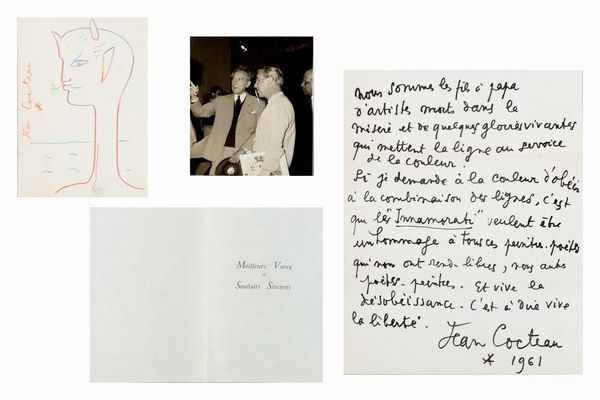 Jean Cocteau
*
Meilleurs Vœux
et
Souhaits Sincères
nous sommes les fils à papa
d'artistes morts dans la
misère et de quelques gloires vivantes
qui mettent la ligne au service
de la couleur.
Si je demande à la couleur d'obéir
à la combinaison des lignes, c'est
que les "Innamorati" veulent être
un hommage à tous ces peintres-poètes
qui nous ont rendu libres, nous autres
poètes-peintres. Et vive la
désobéissance. C'est à dire vive
la liberté.
Jean Cocteau
* 1961